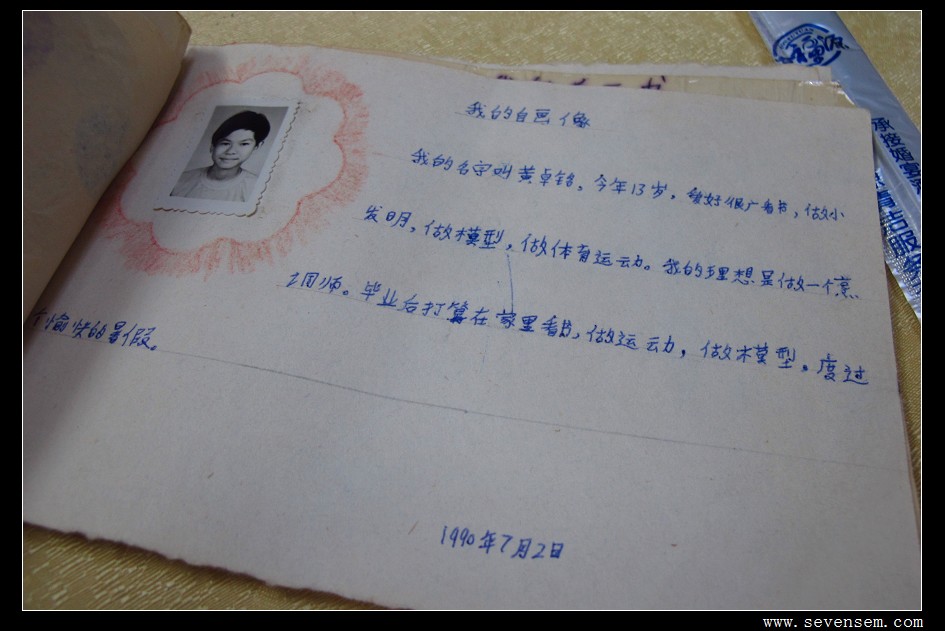 我的自画像
我的名字叫黄卓铭。今年13岁,爱好很广看书,做小
发明,做模型,做体育运动。我的理想是做一个
师。毕业后打算在家里看书,做运动,做木模型。度过
愉快的暑假。
1990年7月2日
承接婚宴
www.sevensem.com